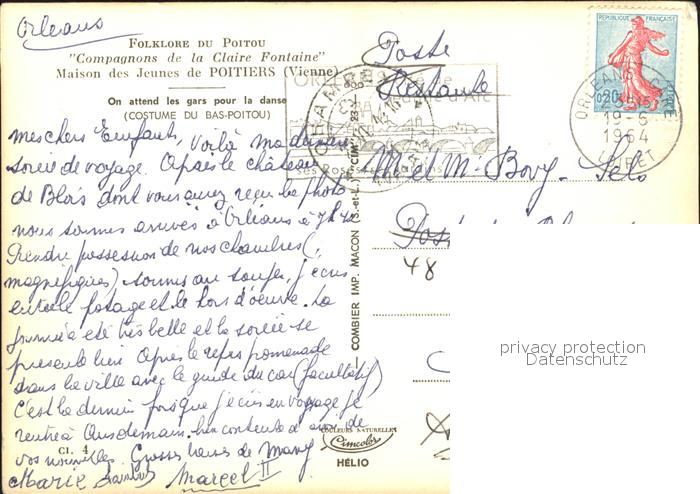 Orléans
FOLKLORE DU POITOU
"Compagnons de la Claire Fontaine"
Maison des Jeunes de POITIERS (Vienne)
On attend les gars pour la danse
(COSTUME DU BAS-POITOU)
Poste
Restante
RÉPUBLIQUE FRANÇAISE
0,20
ORLEANS
19-6
1964
LOIRET
mes chers Enfants, Voilà ma dernière
soirée de voyage. Après le château
de Blois dont vous aurez reçu la photo
nous sommes arrivés à Orléans à 7h
Prendre possession de nos chambres (
magnifiques) sommes au souper, j'écris
entre le potage et le hors d'oeuvre. La
journée a été très belle et la soirée se
présente bien. Après le repas promenade
dans la ville avec le guide du car (facultatif)
C'est la dernière fois que j'écris en voyage je
rentre après demain. bien contente d'avoir de
vos nouvelles. Grosses bises de Many
Marie Marcel II
M et Mr Bovy - Sels
48
COMBIER IMP. MACON (S.-et-L.) "CIM"
COULEURS NATURELLES
Cimcolor
HÉLIO
Cl. 4
privacy protection
Datenschutz